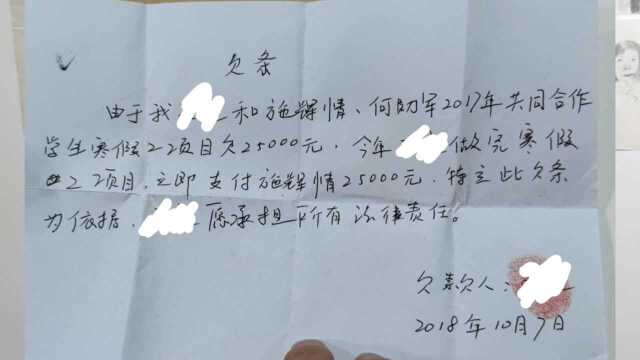 欠条
由于我 和施辉情、何助军2017年共同合作
学生寒假工项目欠25000元，今年 做完寒假
工项目，立即支付施辉情25000元．特立此欠条
为依据． 愿承担所有法律责任。
欠款人：
2018年10月7日